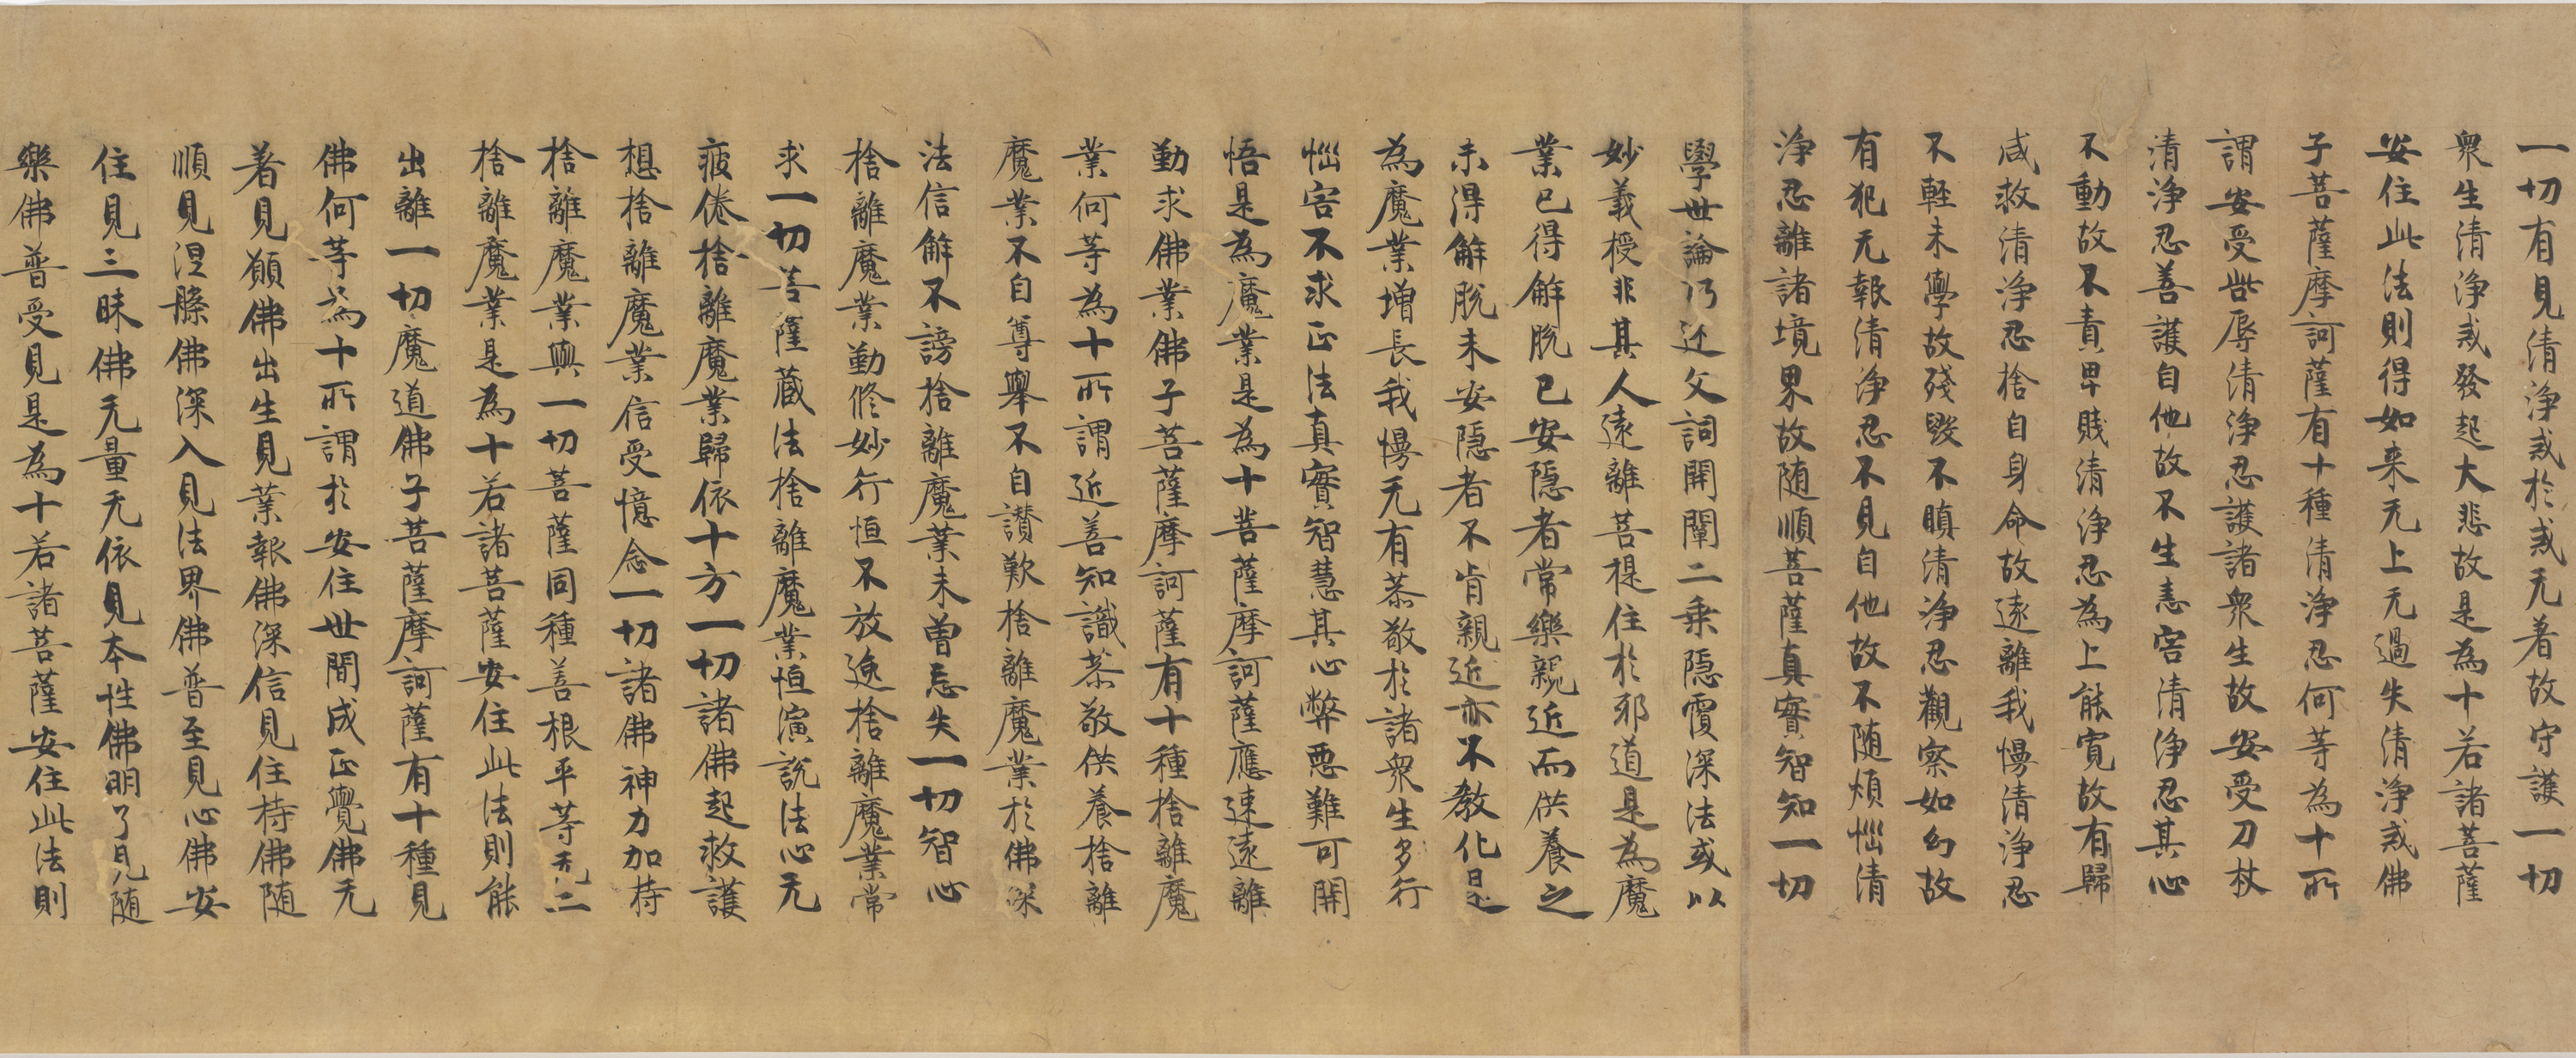 一切有見清淨戒於戒无著故守護一切
衆生清淨戒發起大悲故是為十若諸菩薩
安住此法則得如来无上无過失清淨戒佛
子菩薩摩訶薩有十種清淨忍何等為十所
謂安受訾辱清淨忍護諸衆生故安受刀杖
清淨忍善護自他故不生恚害清淨忍其心
不動故不責卑賤清淨忍為上能寛故有歸
咸救清淨忍捨自身命故遠離我慢清淨忍
不軽未學故殘毀不瞋清淨忍觀察如幻故
有犯无報清淨忍不見自他故不随煩惱清
淨忍離諸境界故随順菩薩真實智知一切
學世論巧述文詞開闡二乗隠覆深法或以
妙義授非其人遠離菩提住於邪道是為魔
業已得解脫已安隠者常樂親近而供養之
未得解脫未安隠者不肯親近亦不教化是
為魔業増長我慢无有恭敬於諸衆生多行
惱害不求正法真實智慧其心弊惡難可開
悟是為魔業是為十菩薩摩訶薩應速遠離
勤求佛業佛子菩薩摩訶薩有十種捨離魔
業何等為十所謂近善知識恭敬供養捨離
魔業不自尊舉不自讃歎捨離魔業於佛深
法信解不謗捨離魔業未曽忘失一切智心
捨離魔業勤修妙行恒不放逸捨離魔業常
求一切菩薩蔵法捨離魔業恒演說法心无
疲倦捨離魔業歸依十方一切諸佛起救護
想捨離魔業信受憶念一切諸佛神力加持
捨離魔業與一切菩薩同種善根平等无二
捨離魔業是為十若諸菩薩安住此法則能
出離一切魔道佛子菩薩摩訶薩有十種見
佛何等為十所謂於安住世間成正覺佛无
著見願佛出生見業報佛深信見住持佛随
順見涅槃佛深入見法界佛普至見心佛安
住見三昧佛无量无依見本性佛明了見随
樂佛普受見是為十若諸菩薩安住此法則